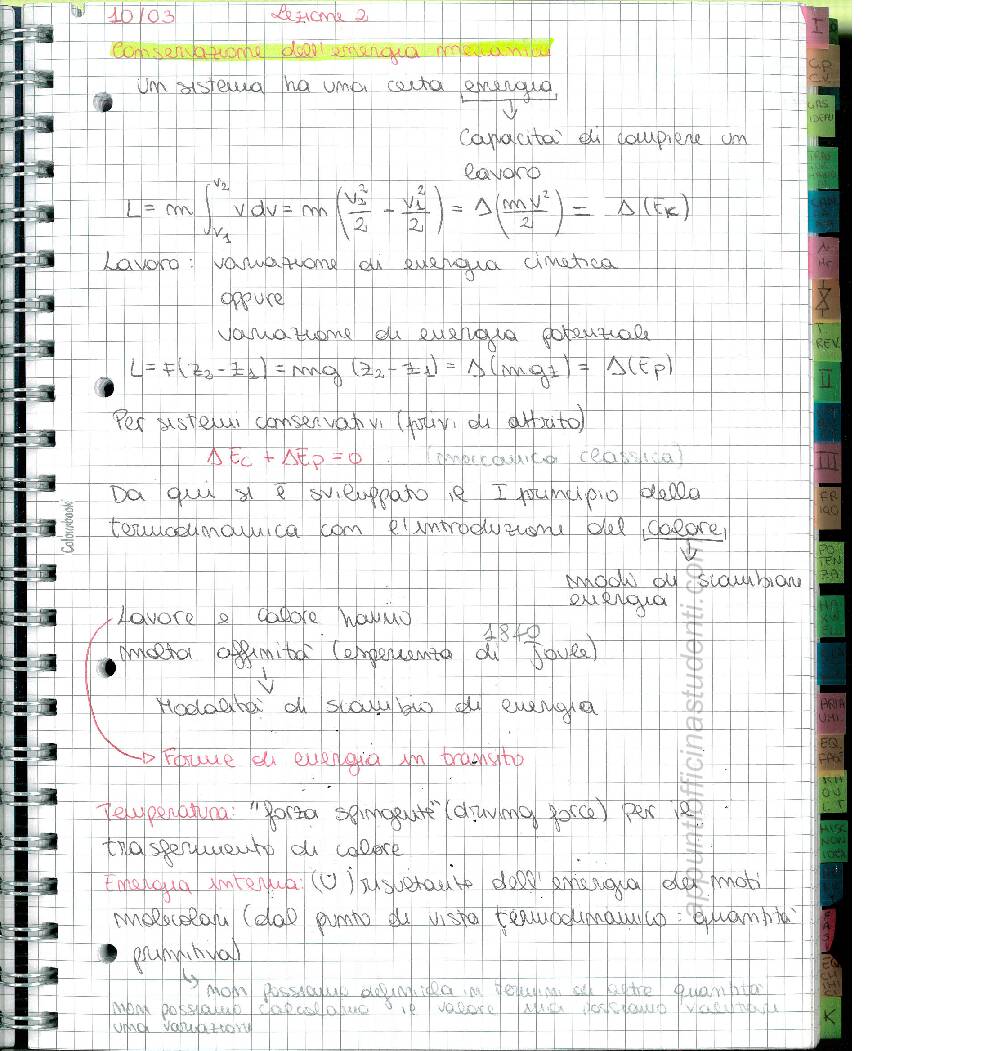 10/03 Lezione 2
Conservazione dell'energia meccanica
Un sistema ha una certa energia
Capacità di compiere un
lavoro
L = m ∫_{v₁}^{v₂} v dv = m (v₂²/2 - v₁²/2) = Δ(mv²/2) = Δ(Eₖ)
Lavoro: variazione di energia cinetica
oppure
variazione di energia potenziale
L = F(z₂-z₁) = mg (z₂-z₁) = Δ(mgz) = Δ(Ep)
Per sistemi conservativi (privi di attrito)
ΔEc + ΔEp = 0 (meccanica classica)
Da qui si è sviluppato il I principio della
termodinamica con l'introduzione del calore
↓
modo di scambiare
energia
Lavoro e calore hanno
1840
molta affinità (esperienza di Joule)
↓
Modalità di scambio di energia
→ Forme di energia in transito
Temperatura: "forza spingente" (driving force) per il
trasferimento di calore
Energia interna: (U) risultante dell'energia dei moti
molecolari (dal punto di vista termodinamico: quantità
primitiva)
↳ non possiamo definirla in termini di altre quantità
non possiamo calcolarne il valore ma possiamo valutare
una variazione
Colourbook
appuntiofficinastudenti.com
I
CP
CV
GAS
IDEALI
REV.
II
III
FRIGO
POTENZA
MAXWELL
ARIA
UMI.
K